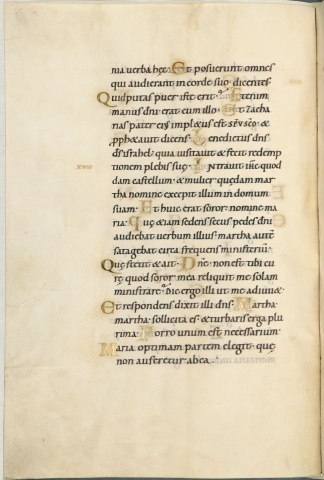 nia uerba hęc· Et posuerunt omnes
qui audierant in corde suo dicentes·
Quid putas puer iste erit· Etenim
manus dn̄i erat cum illo· Et zacha
rias pater eius impletus est sp̄u sc̄o· &
p̱ph&auit dicens· Benedictus dn̄s
d̄s israhel· quia uisitauit & fecit redemp
tionem plebis suę·
xviii
Intrauit ih̄c quod
dam castellum· & mulier quędam mar
tha nomine excepit illum in domum
suam· Et huic erat soror nomine ma
ria· Quę &iam sedens secus pedes dn̄i
audiebat uerbum illius· martha aute͞
satagebat circa frequens ministeriū·
Quę stetit & ait· Dn̄e· non est tibi cu
rę quod soror mea reliquit me solam
ministrare· dic ergo illi ut me adiuu&·
Et respondens dixit illi dn̄s· Martha·
martha· sollicita es· & turbaris erga plu
rima· Porro unum est necessarium·
Maria optimam partem elegit· quę
non auferetur ab ea·